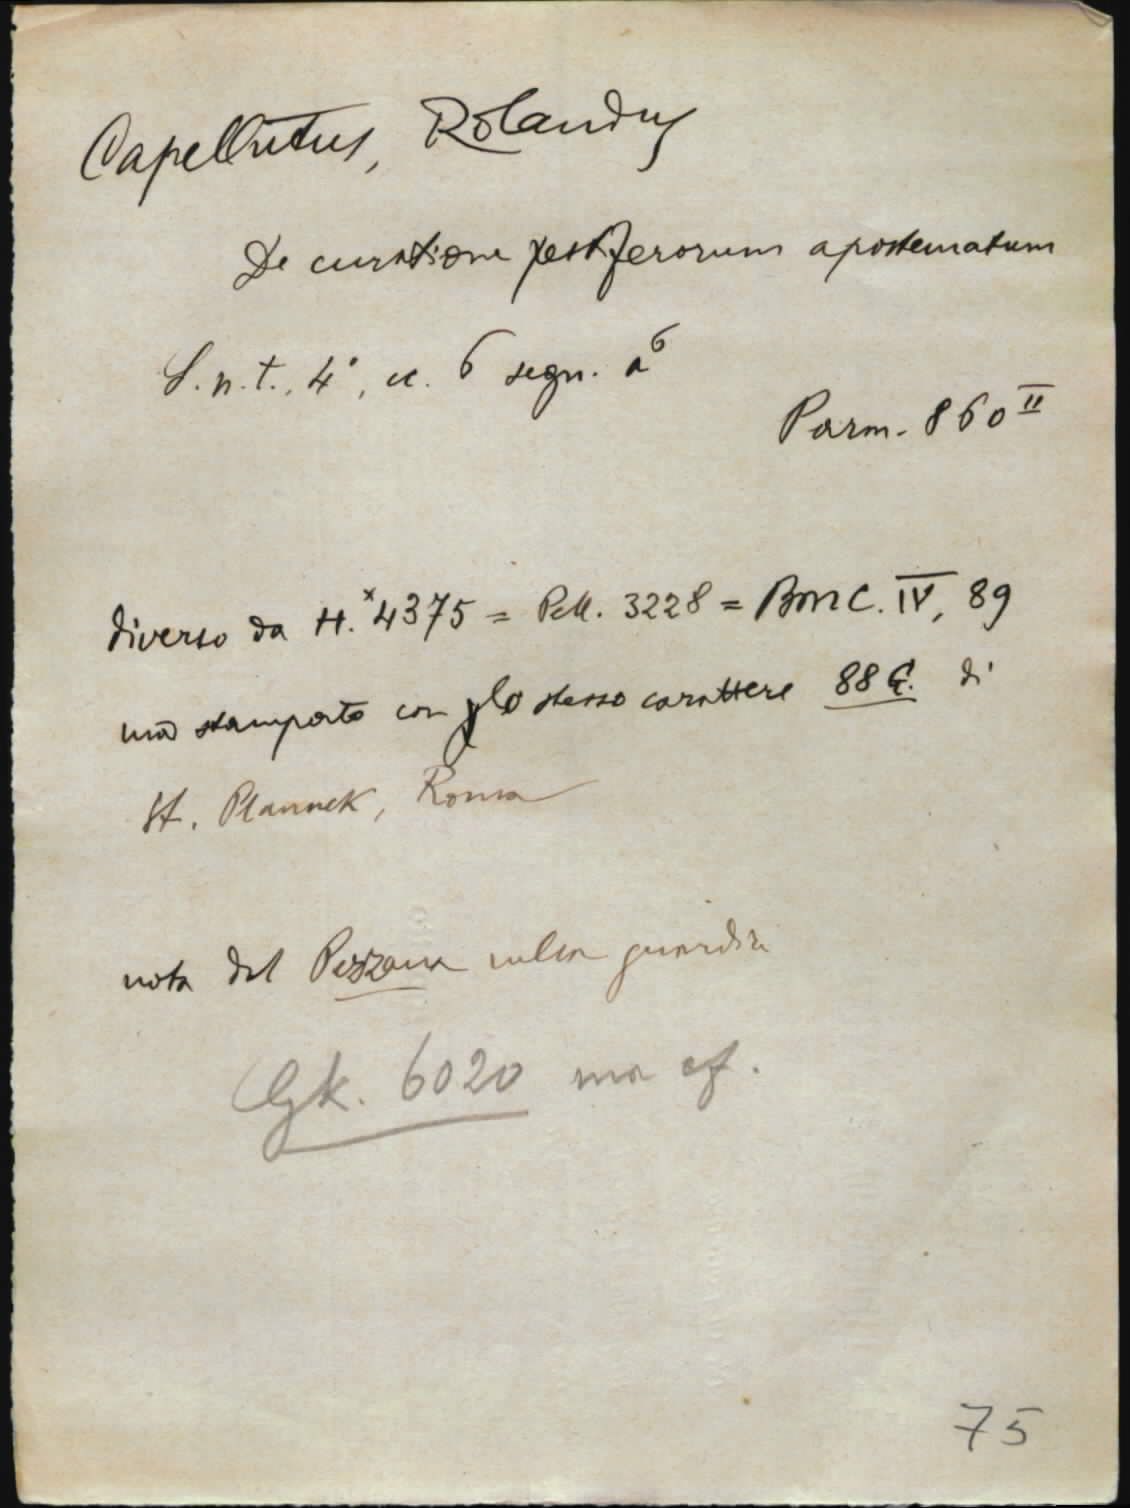 Capellutus, Rolandus
De curatione pestiferorum apostematum
S. n. t., 4°, cc. 6 segn. a⁶
Parm. 860 II
diverso da H.ˣ 4375 = Pell. 3228 = BMC. IV, 89
ma stampato con lo stesso carattere 88 G. di
St. Plannck, Roma
nota del Pezzana sulla guardia
Gk. 6020 ma cf.
75